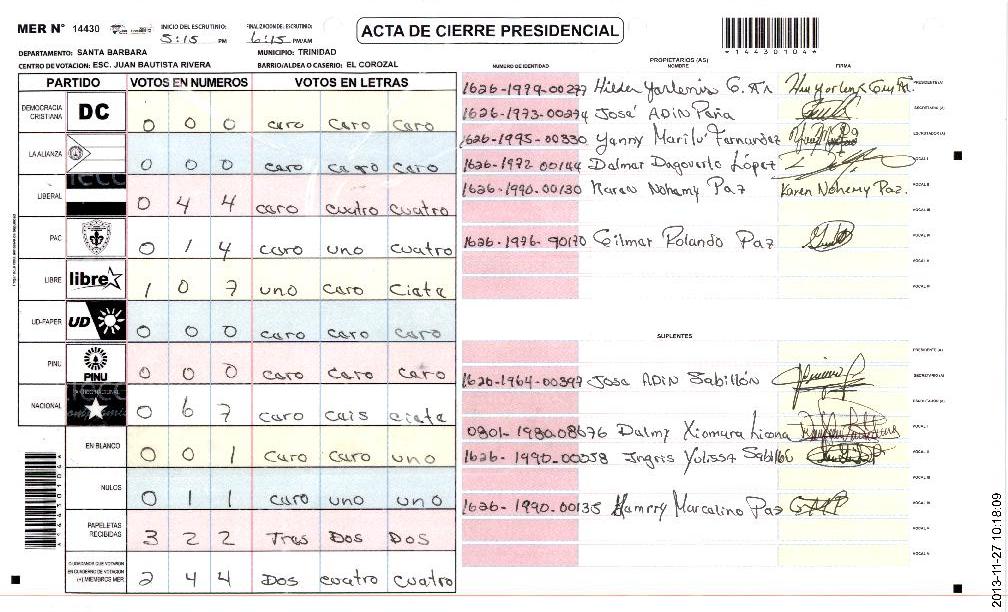 MER N° 14430
INICIO DEL ESCRUTINIO: 5:15 PM
FINALIZACION DEL ESCRUTINIO: 6:15 PM/AM
ACTA DE CIERRE PRESIDENCIAL
*14430104*
DEPARTAMENTO: SANTA BARBARA
MUNICIPIO: TRINIDAD
CENTRO DE VOTACION: ESC. JUAN BAUTISTA RIVERA
BARRIO/ALDEA O CASERIO: EL COROZAL
PARTIDO VOTOS EN NUMEROS VOTOS EN LETRAS
DEMOCRACIA CRISTIANA DC 0 0 0 caro caro caro
LA ALIANZA 0 0 0 caro caro caro
LIBERAL 0 4 4 caro cuatro cuatro
PAC 0 1 4 caro uno cuatro
LIBRE libre 1 0 7 uno caro ciete
UD-FAPER UD 0 0 0 caro caro caro
PINU PINU 0 0 0 caro caro caro
NACIONAL 0 6 7 caro cais ciete
EN BLANCO 0 0 1 caro caro uno
NULOS 0 1 1 caro uno uno
PAPELETAS RECIBIDAS 3 2 2 Tres Dos Dos
CIUDADANOS QUE VOTARON EN CUADERNO DE VOTACION (+) MIEMBROS MER 2 4 4 Dos cuatro cuatro
PROPIETARIOS (AS)
NUMERO DE IDENTIDAD NOMBRE FIRMA
1626-1979-00277 Hilder Yorlenis G. PRESIDENTE (A)
1626-1973-00274 José ADin Peña SECRETARIO (A)
1626-1995-00330 Yanny Marilu Fernandez ESCRUTADOR (A)
1626-1972-00144 Dalmar Dagoverto López VOCAL I
1626-1990-00130 Karen Nohemy Paz Karen Nohemy Paz. VOCAL II
VOCAL III
1626-1976-90170 Gilmar Rolando Paz VOCAL IV
VOCAL V
VOCAL VI
SUPLENTES
PRESIDENTE (A)
1626-1964-00397 Jose ADin Sabillón SECRETARIO (A)
ESCRUTADOR (A)
0801-1980-08676 Dalmy Xiomara VOCAL I
1626-1990-00058 Ingris Yolissa VOCAL II
1626-1990-00135 Marcalino Paz VOCAL III
VOCAL V
VOCAL VI
2013-11-27 10:18:09